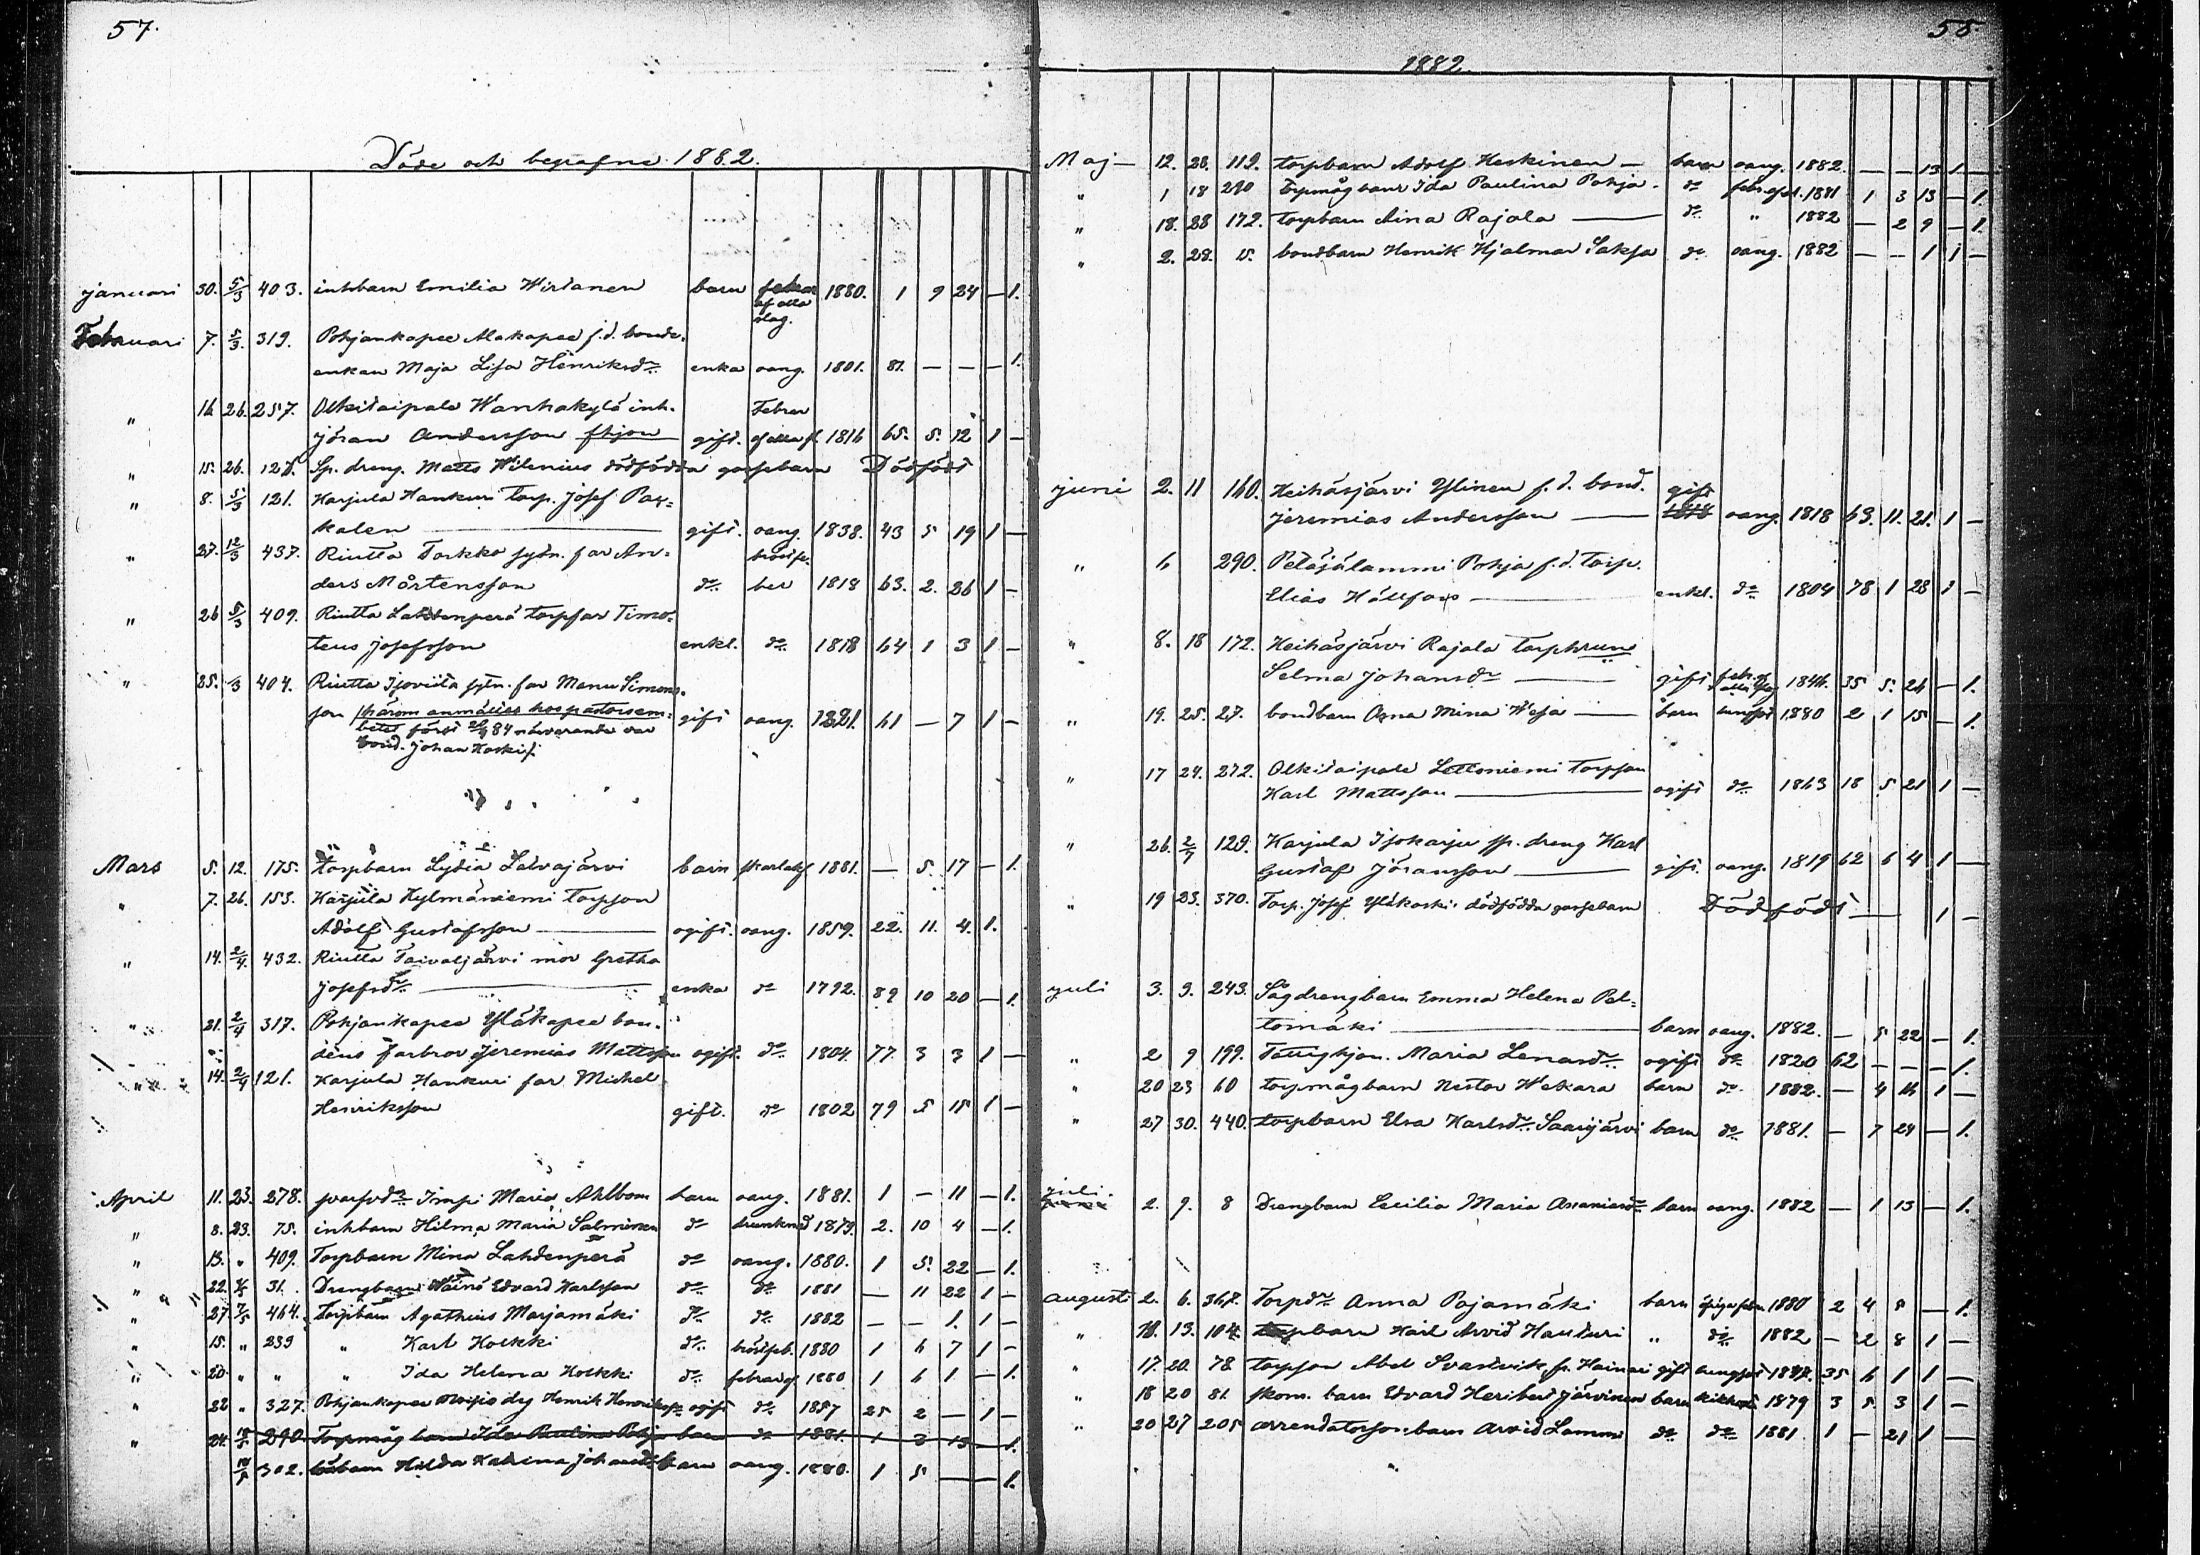 57.
Döde och begrafne 1882.
januari 30. 5/3 403. inhbarn Emilia Wirtanen barn feber af alla slag. 1880. 1 9 24 — 1.
Februari 7. 5/3. 319. Pohjankapee Alakapee f.d. bonde-
enkan Maja Lisa Henriksdr. enka oang. 1801. 81. — — — 1.
" 16 26. 257. Olkitaipale Wanhakylä inh. Feber
jöran Andersson gift. af alla sl. 1816 65. 5. 12 1 —
" 15. 26. Sp. dreng. Matts Wilenius dödfödda gossebarn Dödfödt
" 8. 5/3 121. Harjula Hankuri torp. Josef Pas-
kalen — gift. oang. 1838. 43 5 19 1 —
" 27. 12/3 437. Riutta Torkko sytn. far An-
ders Mårtensson do ber 1818 63. 2. 26 1 —
" 26 5/3 409. Riutta Lahdenperä torpfar Timo-
teus Josefsson enkl. do 1818 64 1 3 1 —
" 25. /3 404. Riutta Isoviita sytn. far Manu Simons-
son gift oang. 1821. 61 — 7 1 —
bond. Johan Koski
Mars 5. 12. 175. Torpbarn Lydia Latvajärvi barn skarlakf 1881. — 5. 17 — 1.
" 7. 26. 153. Harjula Kylmäniemi torpson
Adolf Gustafsson — ogift. oang. 1859. 22. 11. 4. 1.
" 14. 2/4. 432. Riutta Taivaljärvi mor Gretha
Josefsdr. — enka do 1792. 89 10 20 — 1.
" 21. 2/4 317. Pohjankapee Yläkapee bon-
dens farbror Jeremias Mattsson ogift. do. 1804. 77. 3 3 1 —
" 14. 2/4 121. Harjula Hankuri far Michel
Henriksson gift. do 1802 79 5 15 1 —
April 11. 23. 278. Impi Maria Ahlbom barn oang. 1881. 1 — 11 — 1.
" 8. 23. 75. inhbarn Hilma Maria Salminen do drunknad 1879. 2. 10 4 — 1.
" 13. " 409. Torpbarn Mina Lahdenperä do oang. 1880. 1 5. 22 — 1.
" 22. 31. Drengbarn Wäinö Edvard Karlsson do do 1881 — 11 22 1 —
" 27. 7/5 464. Torpbarn Agathius Marjamäki do do 1882 — — 1. 1 —
" 15. " 239 " Karl Kolkki do. bröstsb. 1880 1 6 7 1 —
" 20. " " " Ida Helena Kolkki do 1880 1 6 1 — 1.
" 22 " 327. Pohjankapee dg Henrik Henriksson ogift do. 1857 25 2 — 1 —
" 24. 18/5 290. Torpmåg barn Ida Paulina Pohja barn do 1881. 1 3 13 — 1.
302. Hilda Katrina Johansdr barn oang. 1880. 1 5 — — 1.
58.
1882.
Maj — 12. 28. 112. torpbarn Adolf Heskinen — barn oang. 1882. — — 13 1 —
" 1 18 290 Torpmåg barn Ida Paulina Pohja. do 1881 1 3 13 — 1.
" 18. 28 172. torpbarn Aina Rajala — do " 1882 — 2 9 — 1.
" 2. 28. 15. bondbarn Henrik Hjalmar Saksa do oang. 1882 — — 1 1 —
juni 2. 11 160. Keihäsjärvi Ylinen f.d. bond. gift
Jeremias Andersson — oang. 1818 63. 11. 21. 1 —
" 6 290. Petäjälammi Pohja f.d. torp.
Elias Hällfors — enkl. do 1804 78 1 28 1 —
" 8. 18 172. Keihäsjärvi Rajala torphrun
Selma Johansdr — gift feb. af alla slag 1846. 35 5. 26 — 1.
" 19. 25. 27. bondbarn Mina Weja — barn lungsot 1880 2 1 15 — 1.
" 17 24. 272. Olkitaipale Lettoniemi torpson
Karl Mattsson — ogift do 1863 18 5 21 1 —
" 26. 2/7 129. Harjula Isoharju sp. dreng Karl
Gustaf Jöransson — gift. oang. 1819 62 6 4 1 —
" 19 23. 370. Torp. Josef Yläkoski dödfödda gossebarn Dödfödt — 1 —
juli 3. 9. 243. Sågdrengbarn Emma Helena Pel-
tomäki — barn oang. 1882. — 5 22 — 1.
" 2 9 199. Fattighjon. Maria Lenasdr ogift do 1820 62 — — — 1.
" 20 23 60 torpmågbarn Nestor Wekara barn do. 1882. — 4 16 1 —
" 27 30. 440. torpbarn Elsa Karlsdr Saarijärvi barn do 1881. — 7 29 — 1.
juli. 2. 9. 8 Drengbarn Cecilia Maria Ananiasdr barn oang. 1882 — 1 13 — 1.
augusti 2. 6. 367. Torpdr Anna Pajamäki barn 1880 2 4 5 — 1.
" 11. 13. 104. torpbarn Karl Arvid Hankuri " do 1882 — 2 8 1 —
" 17. 20. 78 torpson Abel Svartvik fr. Hainari gift lungsot 1847. 35 6 1 1 —
" 18 20 81. skom. barn Edvard Heribert Järvinen barn kikhost 1879 3 5. 3 1 —
" 20 27 205 arrendatorson.barn Arvid Lammi do do 1881. 1 — 21 1 —